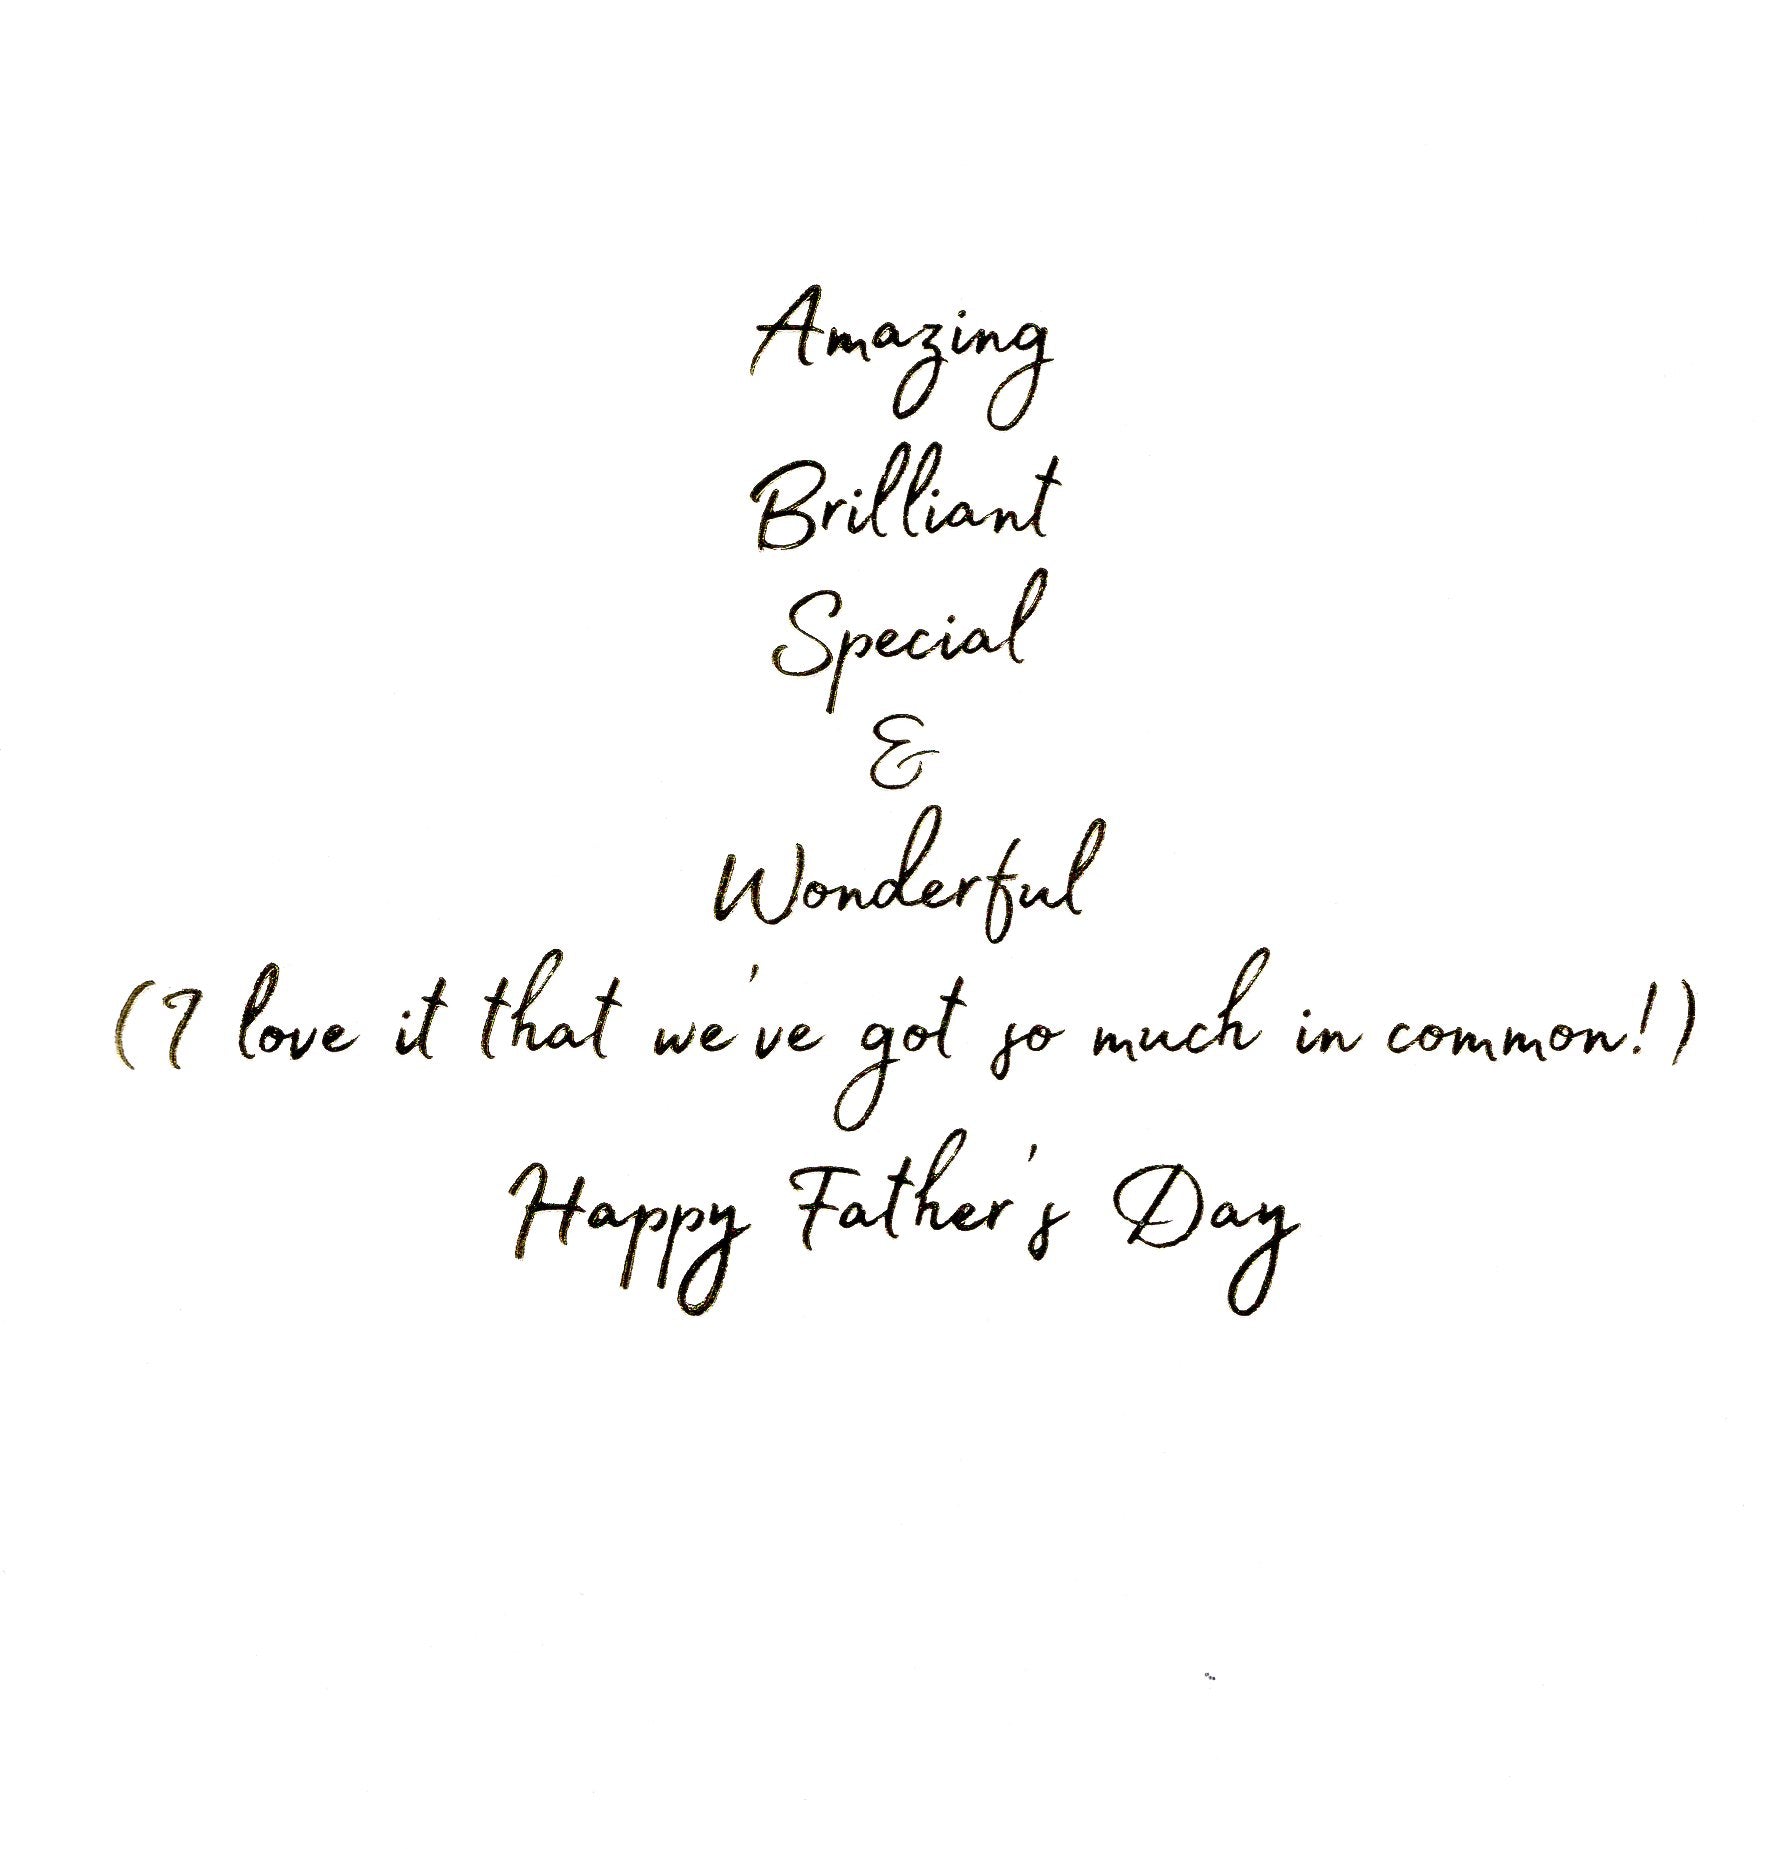 Amazing
Brilliant
Special
&
Wonderful
(I love it that we've got so much in common!)
Happy Father's Day